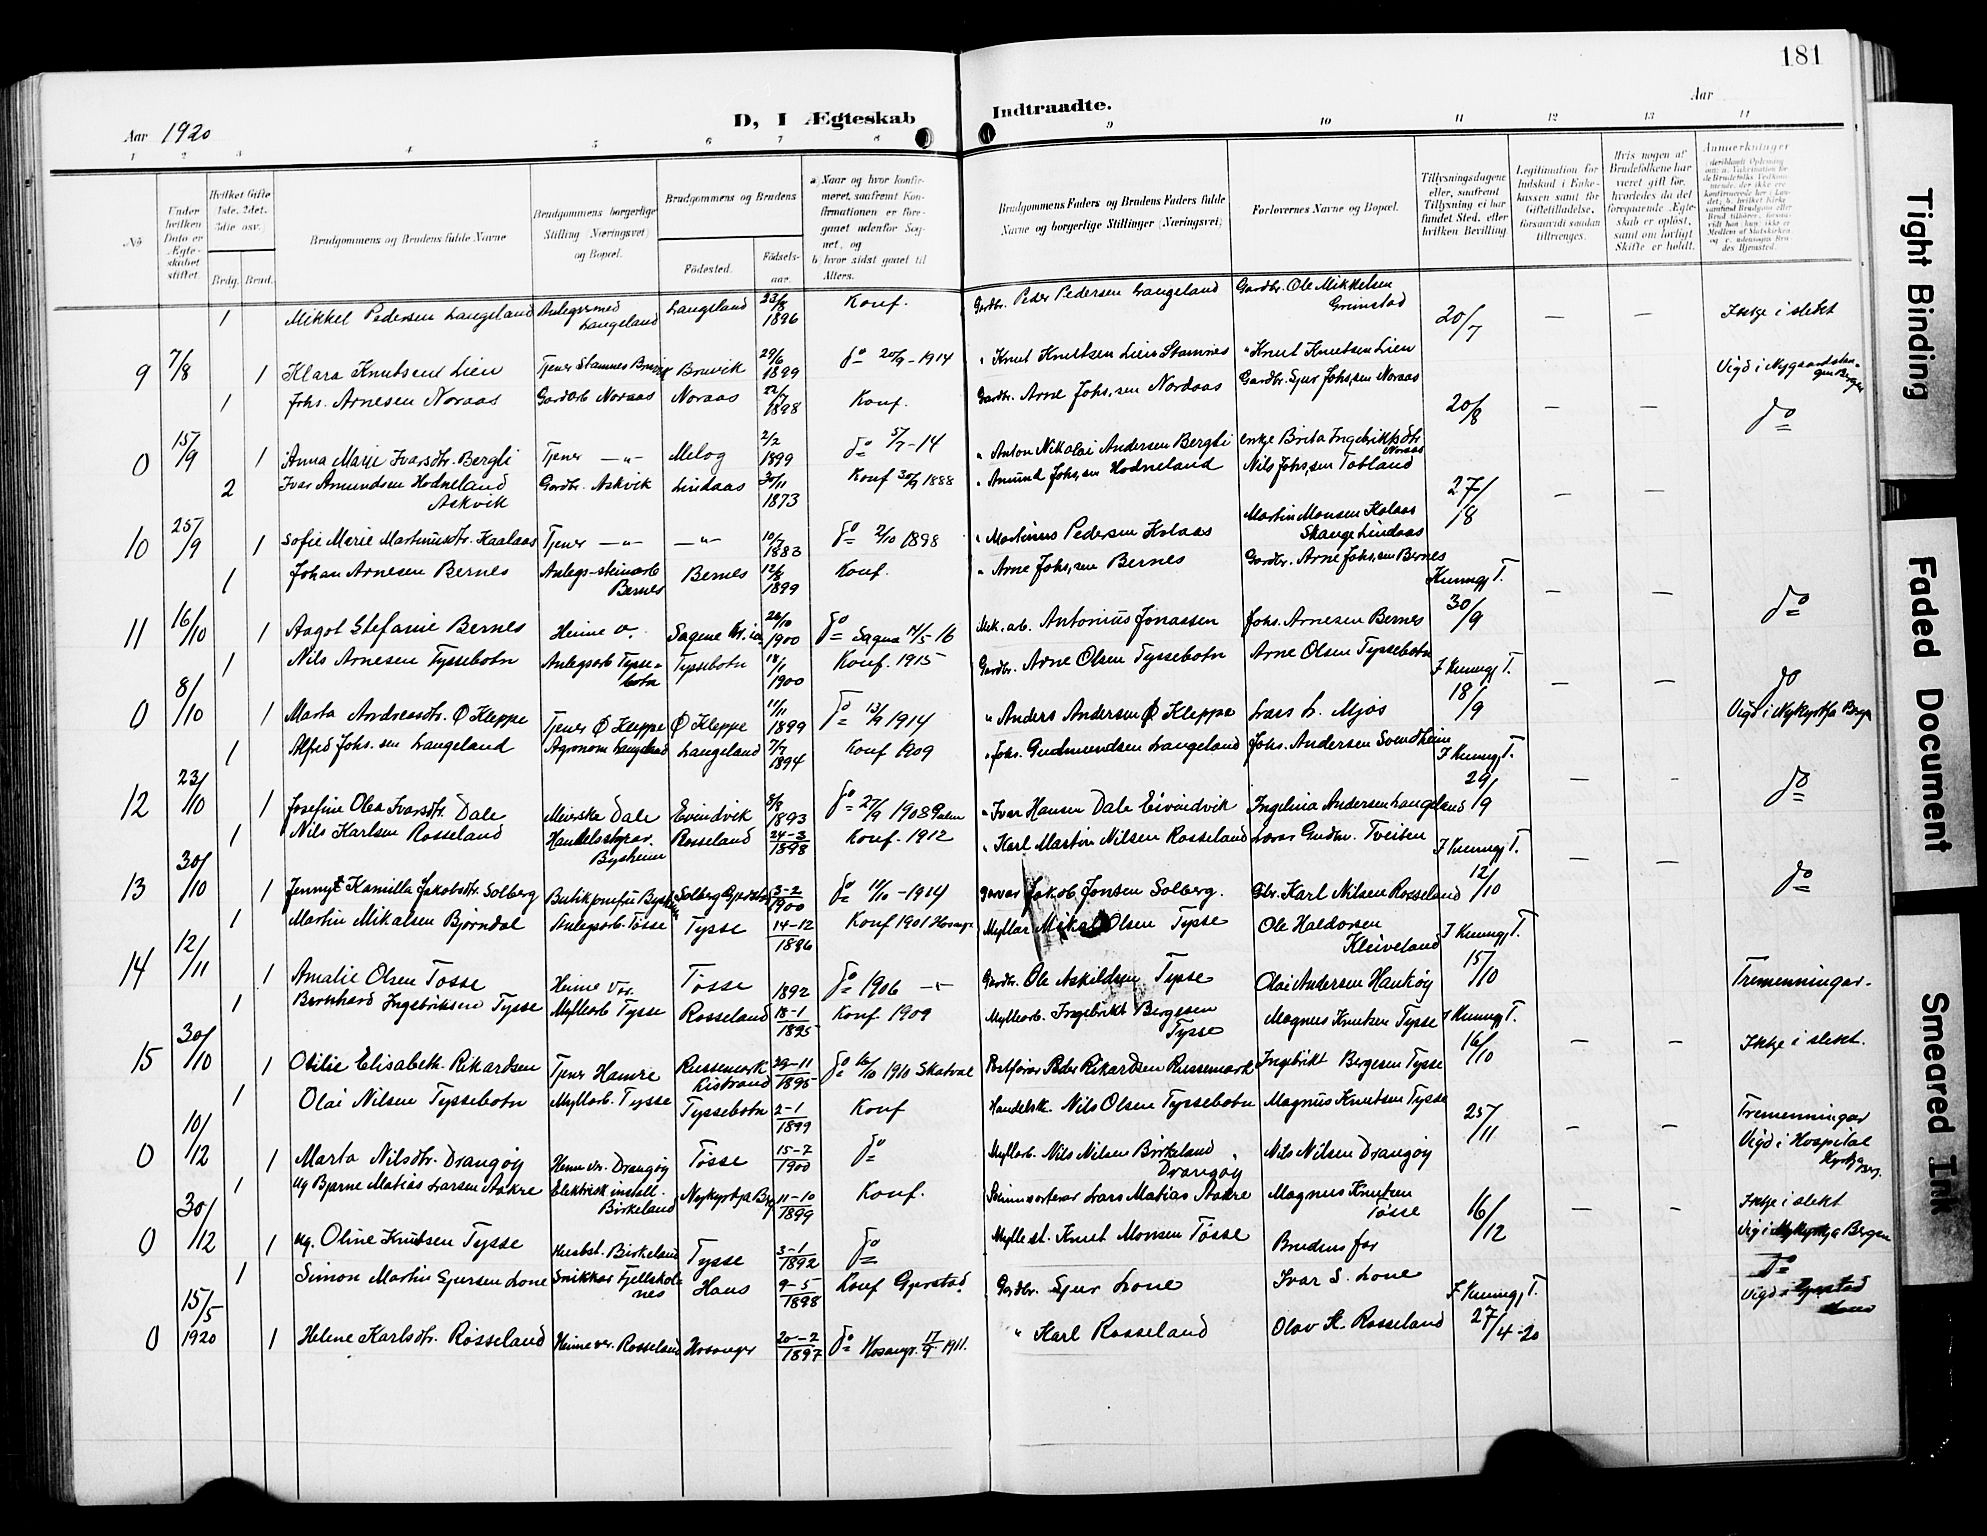 181
Aar 1920
D, I Ægteskab Indtraadte.
Aar
1 2 3 4 5 6 7 8 9 10 11 12 13 14
No
Under hvilken Dato er Ægteskabet stiftet.
Hvilket Gifte 1ste, 2det, 3die osv.
Brdg. Brud.
Brudgommens og Brudens fulde Navne
Brudgommens borgerlige Stilling (Næringsvei) og Bopæl.
Brudgommens og Brudens
Födested.
Födselsaar.
a) Naar og hvor konfirmeret, saafremt Konfirmationen er foregaaet udenfor Sognet, og
b) hvor sidst gaaet til Alters.
Brudgommens Faders og Brudens Faders fulde Navne og borgerlige Stillinger (Næringsvei)
Forlovernes Navne og Bopæl.
Tillysningsdagene eller, saafremt Tillysning ei har fundet Sted, efter hvilken Bevilling.
Legitimation for Indskud i Enkekassen samt for Giftetilladelse, forsaavidt saadan tiltrænges.
Hvis nogen af Brudefolkene har været gift før, hvorledes da det foregaaende Ægteskab er opløst, samt om lovligt Skifte er holdt.
Anmærkninger
1 Mikkel Pedersen Langeland Anlegssmed Langeland Langeland 23/8 1896 Konf. Gardbr. Peder Pedersen Langeland Gardbr. Ole Mikkelsen Grimstad 20/7 — — Ikkje i slekt
9 7/8 1 Klara Knutsen Lien Tjener Stamnes Bruvik Bruvik 29/6 1899 do 20/9-1914 " Knut Knutsen Lien Stamnes " Knut Knutsen Lien Vigd i Nygaardstangen Bergen
1 Johs. Arnesen Noraas Gardarb Noraas Noraas 22/7 1898 Konf. Gardbr. Arne Johs,sen Nordaas Gardbr. Sjur Johs,sen Noraas 20/8 — — do
0 15/9 1 Anna Marie Ivarsdtr. Bergli Tjener —"— Meløg 2/2 1899 do 5/7-14 " Anton Nikolai Andersen Bergli enkje Brita Ingebriktsdtr Noraas
2 Ivar Amundsen Hodneland Askvik Gardbr. Askvik Lindaas 30/11 1873 Konf 30/9 1888 " Amund Johs,sen Hodneland Nils Johs,sen Tobland 27/8 — —
10 25/9 1 Sofie Marie Martinusdtr. Kaalaas Tjener —"— —"— 10/7 1883 do 2/10 1898 " Martinus Pedersen Kolaas Martin Monsen Kolaas Skauge Lindaas
1 Johan Arnesen Bernes Anlegs-steinarb Bernes Bernes 12/8 1899 Konf. " Arne Johs,sen Bernes Gardbr. Arne Johs,sen Bernes Kunngj T. 30/9 — — do
11 16/10 1 Aagot Stefanie Bernes Heime v. Sagene Kr.ia 26/10 1900 do Sagene 14/5-16 Mek.arb. Antonius Jonassen Johs. Arnesen Bernes
1 Nils Arnesen Tyssebotn Anlegsarb Tyssebotn Tyssebotn 18/1 1900 Konf. 1915 Gardbr. Arne Olsen Tyssebotn Arne Olsen Tyssebotn I Kunngj T. 18/9 — — do
0 8/10 1 Marta Andreasdtr. Ø Kleppe Tjener Ø Kleppe Ø Kleppe 17/11 1899 do 13/9 1914 " Anders Andersen Ø Kleppe Lars L. Mjøs Vigd i Nykyrkja Berge
1 Alfred Johs.sen Langeland Agronom Langeland Langeland 7/7 1894 Konf 1909 " Johs. Gudmundsen Langeland Johs. Andersen Svendheim I Kunngj T. 29/9 — — do
12 23/10 1 Josefine Olea Ivarsdtr. Dale Meierske Dale Eivindvik 8/8 1893 do 27/9 1908 " Ivar Hansen Dale Eivindvik Ingelina Andersen Langeland
1 Nils Karlsen Rosseland Handelsstyrar. Bysheim Rosseland 24-3 1898 Konf. 1912 " Karl Martin Nilsen Rosseland Lærar Gudm. Tveiten I Kunngj T. 12/10 — — do
13 30/10 1 Jenny Kamilla Jakobsdtr. Solberg Solberg 3-2 1900 do 11/10-1914 Garvar Jakob Jonsen Solberg. Gbr. Karl Nilsen Rosseland
1 Martin Mikalsen Bjørndal Anlegsarb. Tøsse Tysse 14-12 1886 Konf 1901 Hosangr Myllar Mikal Olsen Tysse Ole Haldorsen Kleiveland I Kunngj T. 15/10
14 12/11 1 Amalie Olsen Tøsse Heime ver. Tøsse 1892 do 1906 Gardbr. Ole Askildsen Tysse Olai Andersen Haukøy Tremenningar.
1 Bernhard Ingebriktsen Tysse Myllearb Tysse Rosseland 18-1 1895 Konf. 1909 Myllearb. Ingebrikt Bergesen Tysse Magnus Knutsen Tysse I Kunngj T. 16/10 — — Ikkje i slekt.
15 30/10 1 Otilie Elisabeth Rikardsen Tjener Hamre Russemark Kistrand 29-11 1895 do 16/10 1910 Skatval Postførar Peder Rikardsen Russemark Ingebrikt Bergesen Tysse
1 Olai Nilsen Tyssebotn Myllarb. Tysse Tyssebotn 2-1 1899 Konf Handelsk. Nils Olsen Tyssebotn Magnus Knutsen Tysse 25/11 — — Tremenningar
0 10/12 1 Marta Nilsdtr. Drangøy Heime ver. Drangøy Tøsse 15-7 1900 do Myllarb. Nils Nilsen Birkeland Drangøy Nils Nilsen Drangøy Vigd i Hospital Kyrkja Brg.
1 Ug Bjarne Matias Larsen Aakre Elektrisk install. Birkeland Nykyrkja Brg 11-10 1899 Konf. Lars Matias Aakre Magnus Knutsen Tøsse 16/12 — — Ikkje i slekt
0 30/12 1 ug. Oline Knutsen Tysse Husbst. Birkeland Tysse 3-1 1892 do Mylle st. Knut Monsen Tøsse Brudens far Vigd i Nykyrkja Bergen
1 Simon Martin Sjursen Lone Snikkar Fjellskolenes Haus 9-5 1898 Konf Gjerstad. Gardbr. Sjur Lone Ivar S. Lone I Kunngj T. 27/4-20 do
0 15/5 1920 1 Helene Karlsdtr. Rosseland Heime ver. Rosseland Hosanger 20-2 1897 do Hosangr. 17/9 1911. " Karl Rosseland Olav K. Rosseland Vigd i Gjerstad
Tight Binding
Faded Document
Smeared Ink